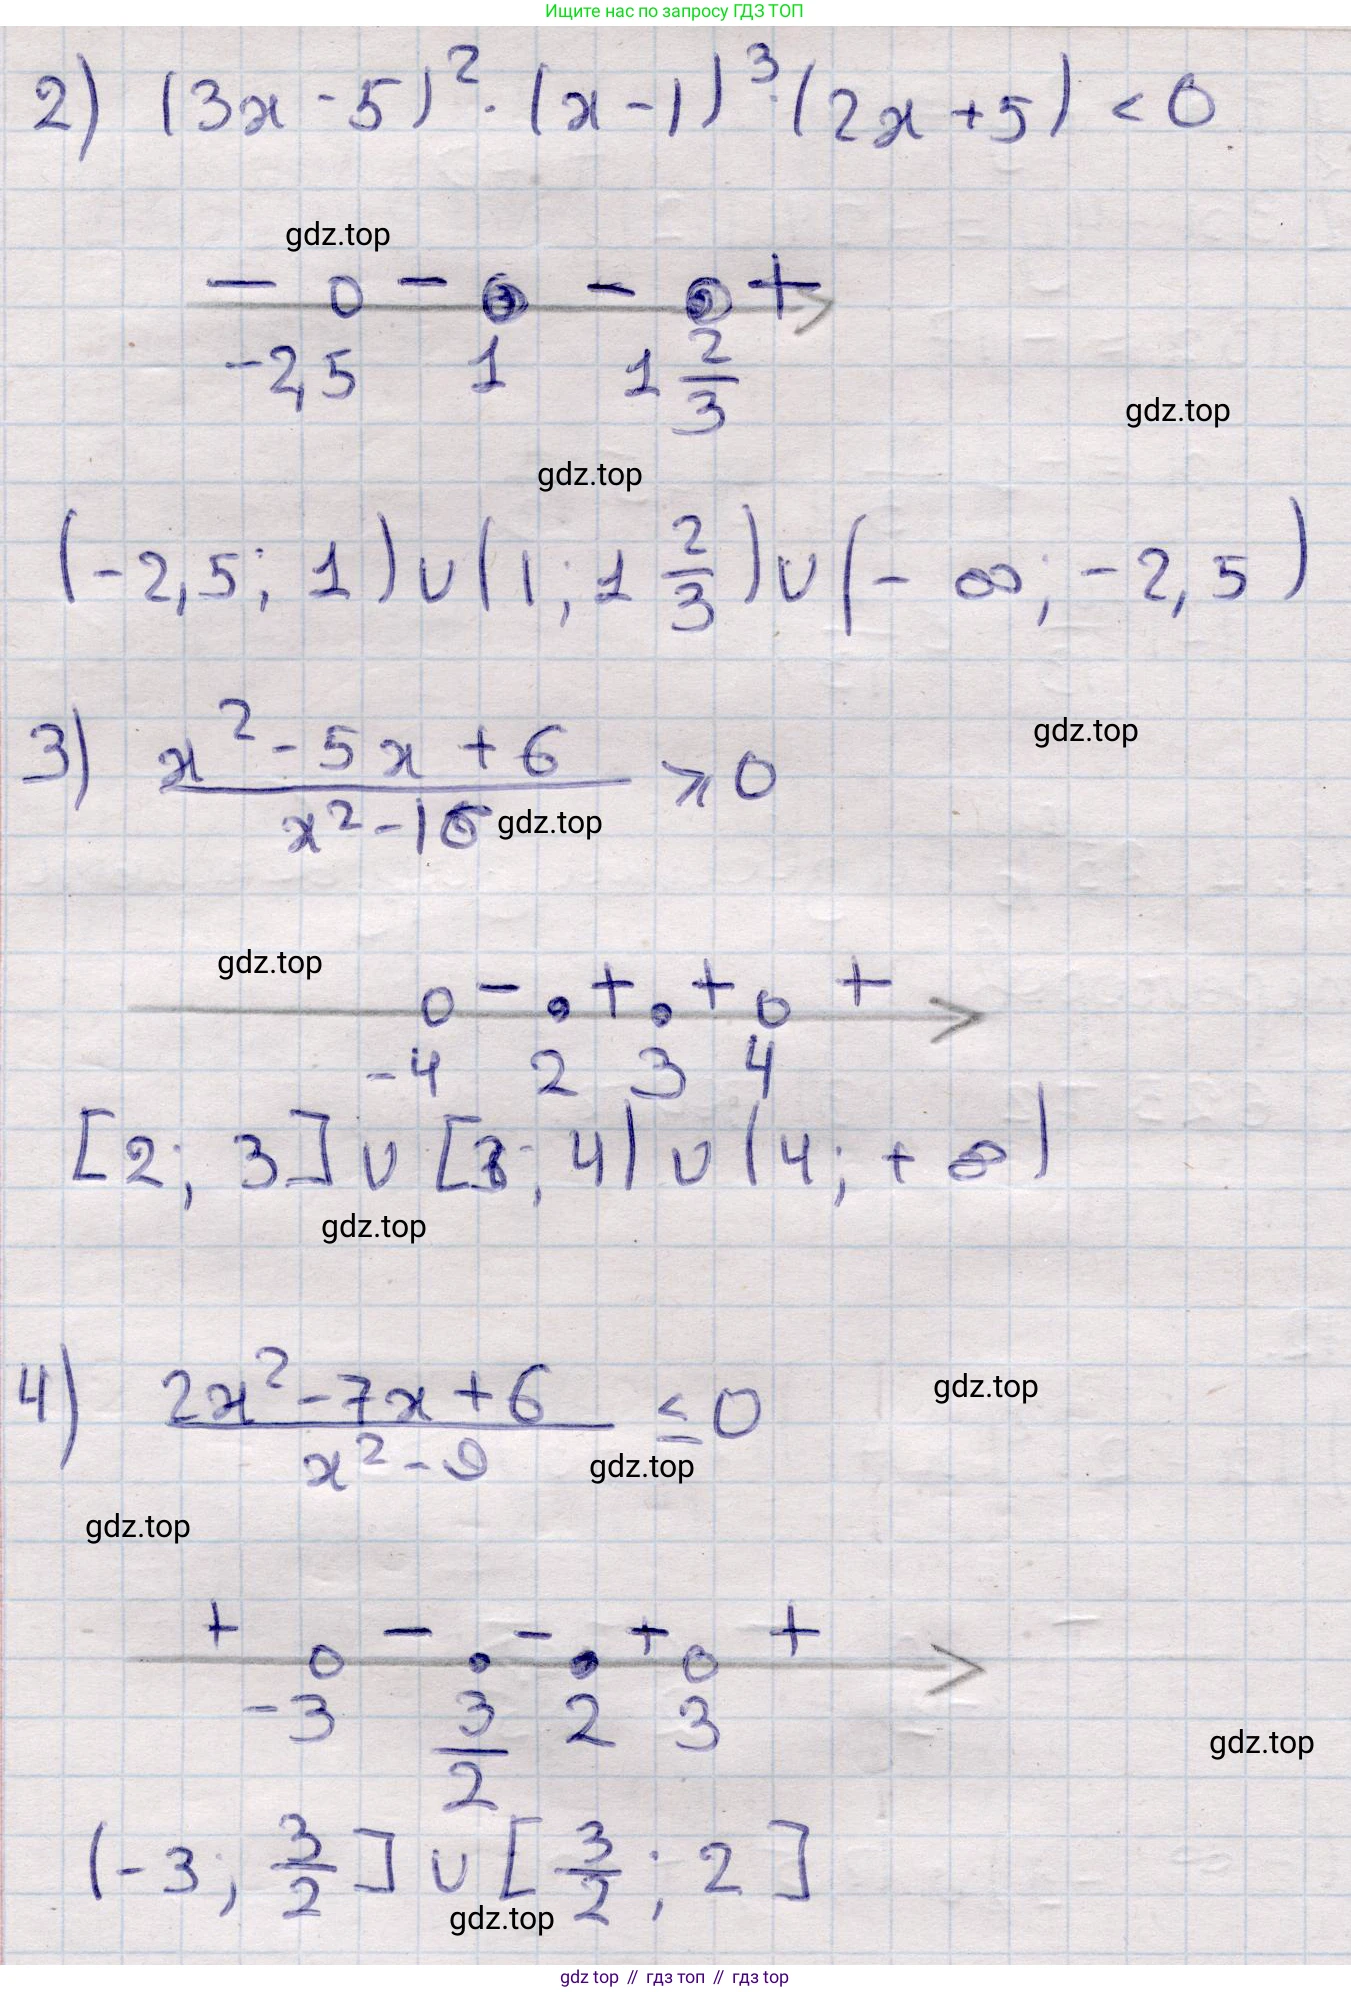 Ищите нас по запросу ГДЗ ТОП
2) (3x - 5)² · (x - 1)³ · (2x + 5) < 0
gdz.top
− − − +
-2,5 1 1 2/3
gdz.top
gdz.top
(-2,5; 1) ∪ (1; 1 2/3) ∪ (- ∞; -2,5)
gdz.top
3) (x² - 5x + 6)/(x² - 16) ⩾ 0
gdz.top
gdz.top
− + + +
-4 2 3 4
[2; 3] ∪ [3; 4) ∪ (4; + ∞)
gdz.top
gdz.top
4) (2x² - 7x + 6)/(x² - 9) ≤ 0
gdz.top
gdz.top
+ − − + +
-3 3/2 2 3
gdz.top
(-3; 3/2] ∪ [3/2; 2]
gdz.top
gdz top // гдз топ // гдз top